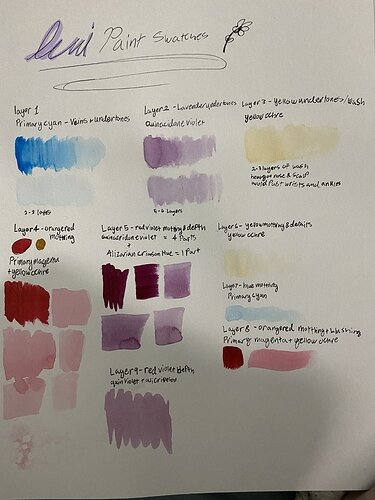 Levi Paint Swatches
Layer 1
Primary cyan - Veins + undertones
2-3 layers
Layer 2 - Lavender undertones
Quinacridone violet
5-6 layers
Layer 3 - Yellow undertones/Wash
Yellow ochre
2-3 layers of wash
heavy on nose & scalp
avoid past wrists and ankles
Layer 4 - orange red
mottling
Primary magenta
+ yellow ochre
Layer 5 - red violet mottling & depth
quinacridone violet = 4 Parts
+
Alizarian Crimson Hue = 1 Part
Layer 6 - yellow mottling & details
yellow ochre
Layer 7 - blue mottling
Primary cyan
Layer 8 - orange red mottling + washing
Primary magenta + yellow ochre
Layer 9 - red violet depth
quin violet + aliz crimson